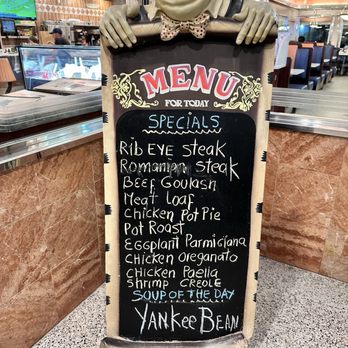 MENU
FOR TODAY
SPECIALS
Rib EYE steak
Romanian steak
Beef Goulash
Meat Loaf
Chicken Pot Pie
Pot Roast
Eggplant Parmiciana
Chicken Oreganato
Chicken Paella
Shrimp CREOLE
SOUP OF THE DAY
YANKee BEAN